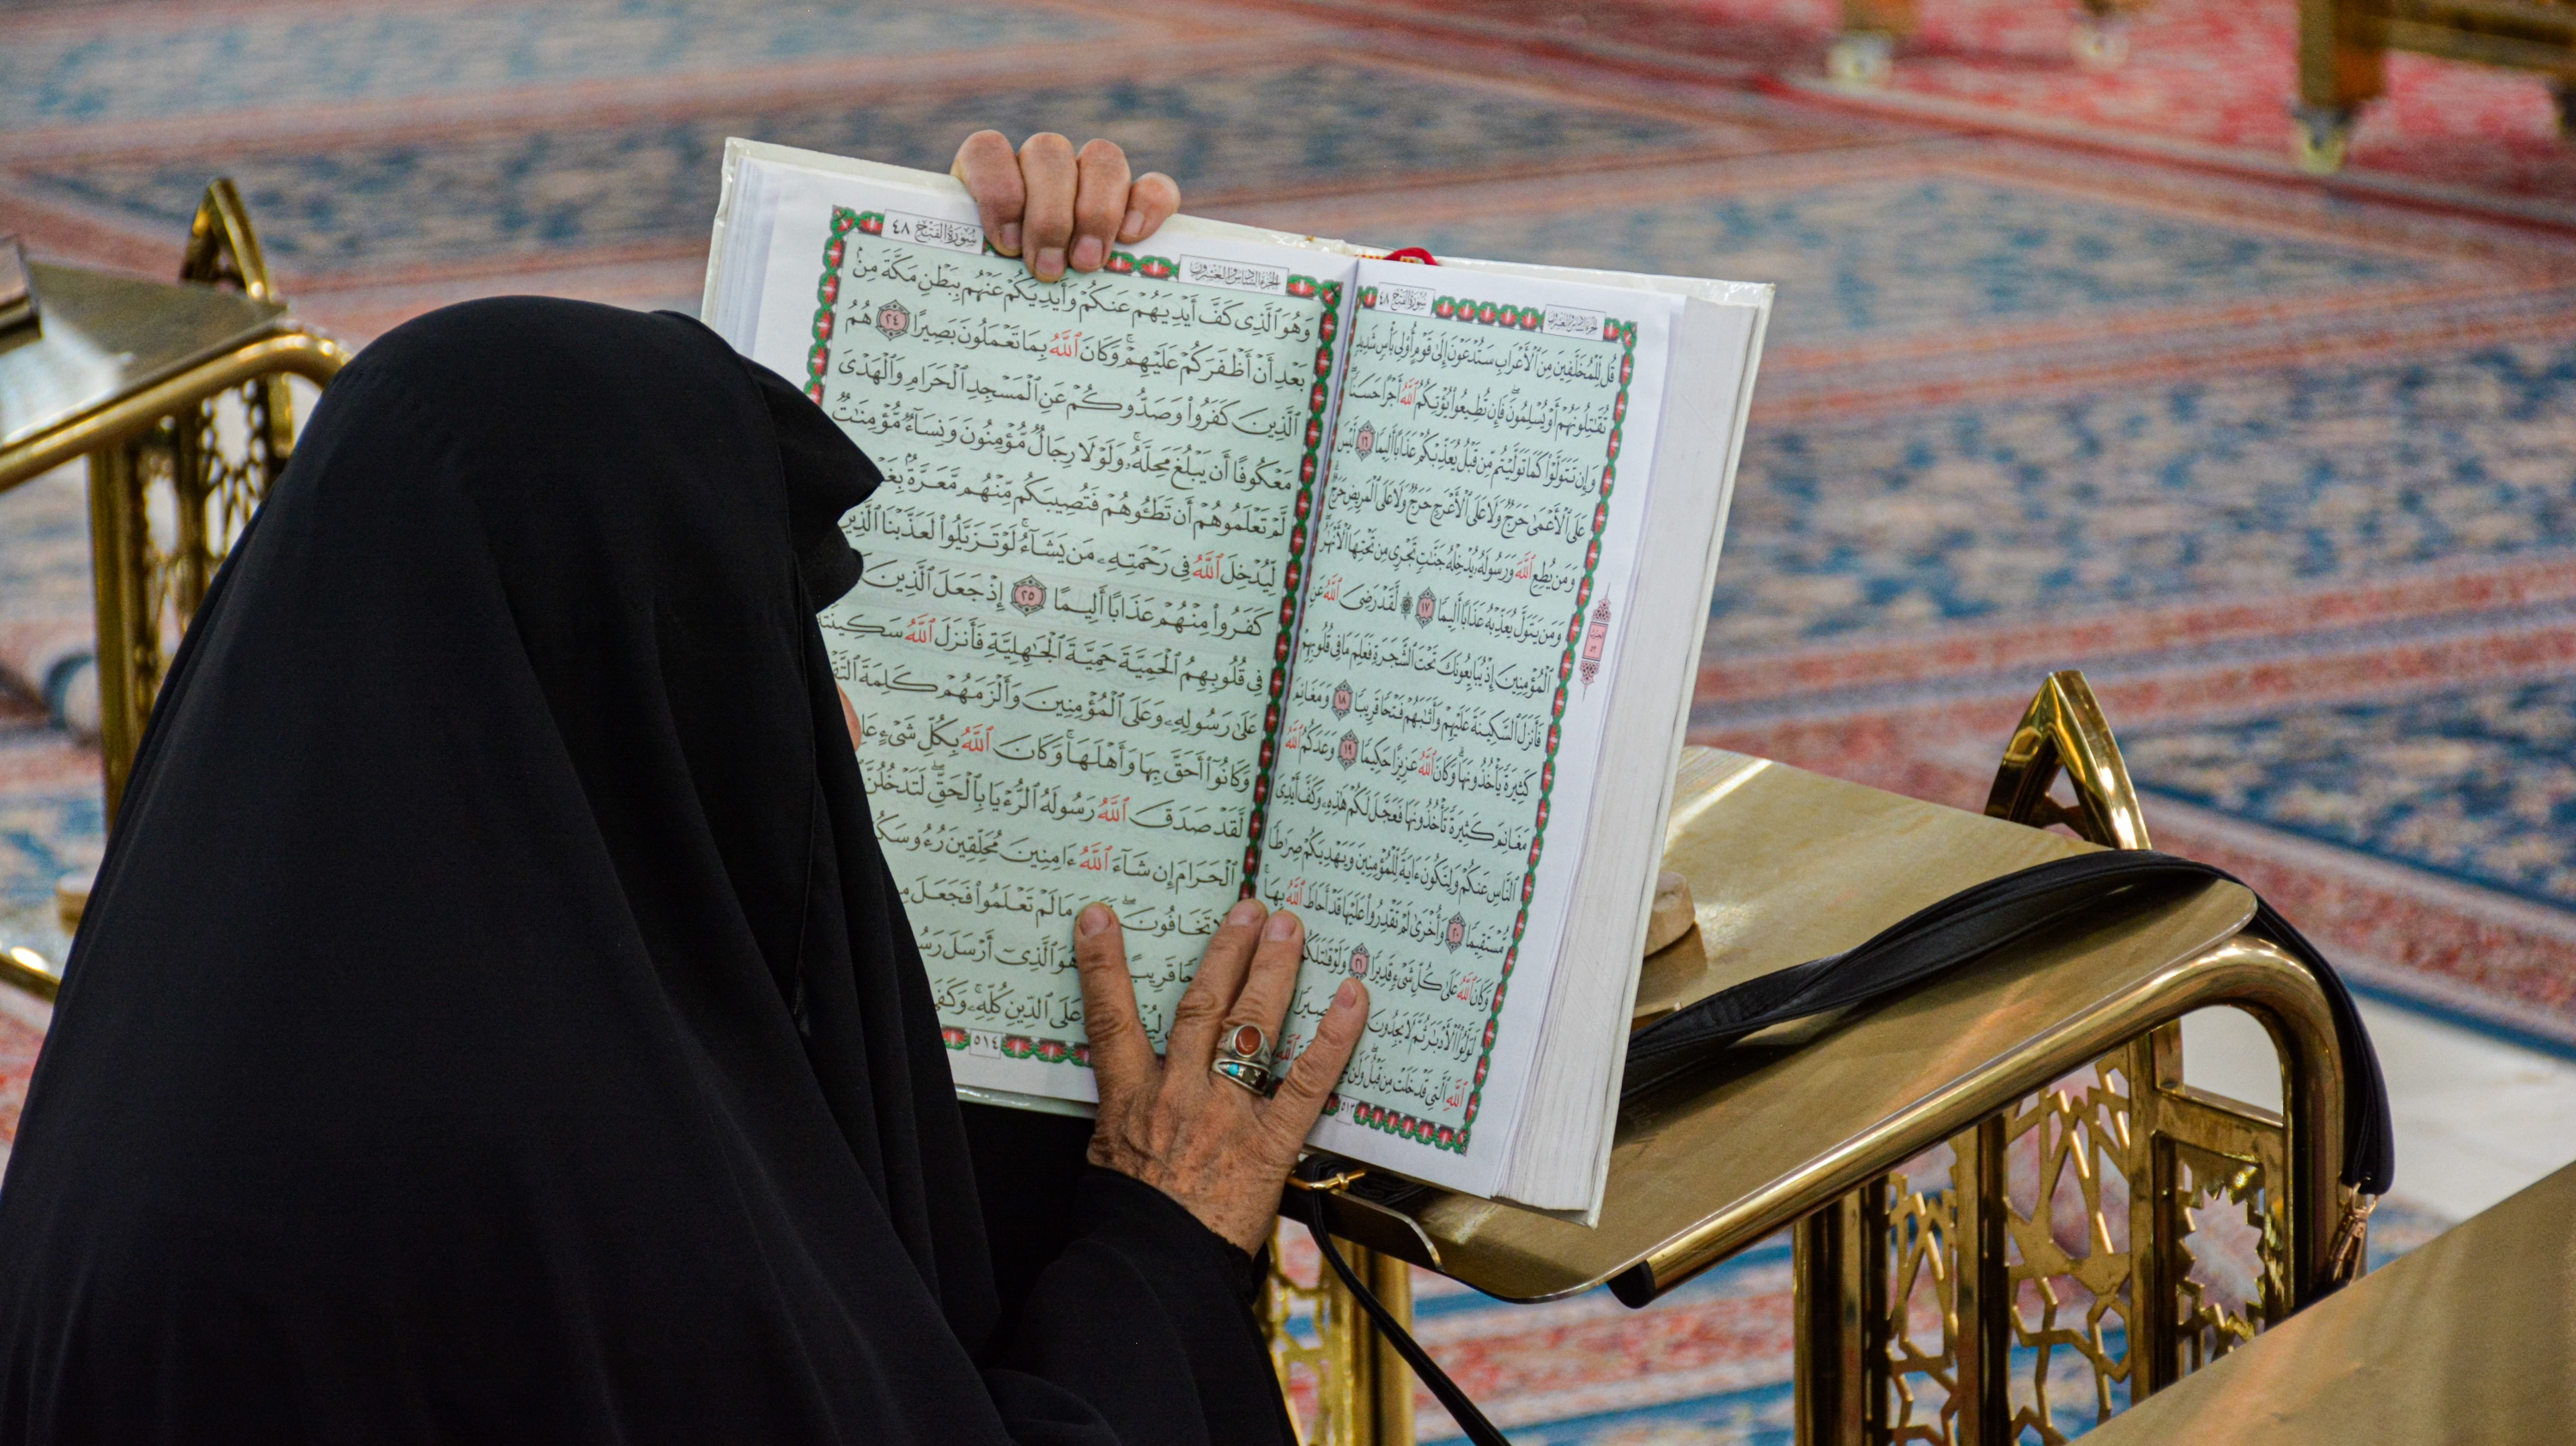 سُورَةُ الفَتْحِ ٤٨
الجُزءُ السَّادِسُ وَالعِشرُونَ
قُل لِّلْمُخَلَّفِينَ مِنَ ٱلْأَعْرَابِ سَتُدْعَوْنَ إِلَىٰ قَوْمٍ أُو۟لِى بَأْسٍ شَدِيدٍ
تُقَٰتِلُونَهُمْ أَوْ يُسْلِمُونَ ۖ فَإِن تُطِيعُوا۟ يُؤْتِكُمُ ٱللَّهُ أَجْرًا حَسَنًا ۖ
وَإِن تَتَوَلَّوْا۟ كَمَا تَوَلَّيْتُم مِّن قَبْلُ يُعَذِّبْكُمْ عَذَابًا أَلِيمًا ١٦ لَّيْسَ
عَلَى ٱلْأَعْمَىٰ حَرَجٌ وَلَا عَلَى ٱلْأَعْرَجِ حَرَجٌ وَلَا عَلَى ٱلْمَرِيضِ حَرَجٌ ۗ
وَمَن يُطِعِ ٱللَّهَ وَرَسُولَهُۥ يُدْخِلْهُ جَنَّٰتٍ تَجْرِى مِن تَحْتِهَا ٱلْأَنْهَٰرُ ۖ
وَمَن يَتَوَلَّ يُعَذِّبْهُ عَذَابًا أَلِيمًا ١٧ ۞ لَّقَدْ رَضِىَ ٱللَّهُ عَنِ
ٱلْمُؤْمِنِينَ إِذْ يُبَايِعُونَكَ تَحْتَ ٱلشَّجَرَةِ فَعَلِمَ مَا فِى قُلُوبِهِمْ
فَأَنزَلَ ٱلسَّكِينَةَ عَلَيْهِمْ وَأَثَٰبَهُمْ فَتْحًا قَرِيبًا ١٨ وَمَغَانِمَ
كَثِيرَةً يَأْخُذُونَهَا ۗ وَكَانَ ٱللَّهُ عَزِيزًا حَكِيمًا ١٩ وَعَدَكُمُ ٱللَّهُ
مَغَانِمَ كَثِيرَةً تَأْخُذُونَهَا فَعَجَّلَ لَكُمْ هَٰذِهِۦ وَكَفَّ أَيْدِىَ
ٱلنَّاسِ عَنكُمْ وَلِتَكُونَ ءَايَةً لِّلْمُؤْمِنِينَ وَيَهْدِيَكُمْ صِرَٰطًا
مُّسْتَقِيمًا ٢٠ وَأُخْرَىٰ لَمْ تَقْدِرُوا۟ عَلَيْهَا قَدْ أَحَاطَ ٱللَّهُ بِهَا ۚ
وَكَانَ ٱللَّهُ عَلَىٰ كُلِّ شَىْءٍ قَدِيرًا ٢١ وَلَوْ قَٰتَلَكُمُ
لَوَلَّوُا۟ ٱلْأَدْبَٰرَ ثُمَّ لَا يَجِدُونَ
ٱللَّهِ ٱلَّتِى قَدْ خَلَتْ مِن قَبْلُ ۖ وَلَن
٥١٣
سُورَةُ الفَتْحِ ٤٨
الجُزءُ السَّادِسُ وَالعِشرُونَ
وَهُوَ ٱلَّذِى كَفَّ أَيْدِيَهُمْ عَنكُمْ وَأَيْدِيَكُمْ عَنْهُم بِبَطْنِ مَكَّةَ مِنۢ
بَعْدِ أَنْ أَظْفَرَكُمْ عَلَيْهِمْ ۚ وَكَانَ ٱللَّهُ بِمَا تَعْمَلُونَ بَصِيرًا ٢٤ هُمُ
ٱلَّذِينَ كَفَرُوا۟ وَصَدُّوكُمْ عَنِ ٱلْمَسْجِدِ ٱلْحَرَامِ وَٱلْهَدْىَ
مَعْكُوفًا أَن يَبْلُغَ مَحِلَّهُۥ ۚ وَلَوْلَا رِجَالٌ مُّؤْمِنُونَ وَنِسَآءٌ مُّؤْمِنَٰتٌ
لَّمْ تَعْلَمُوهُمْ أَن تَطَـُٔوهُمْ فَتُصِيبَكُم مِّنْهُم مَّعَرَّةٌۢ
لِّيُدْخِلَ ٱللَّهُ فِى رَحْمَتِهِۦ مَن يَشَآءُ ۚ لَوْ تَزَيَّلُوا۟ لَعَذَّبْنَا ٱلَّذِينَ
كَفَرُوا۟ مِنْهُمْ عَذَابًا أَلِيمًا ٢٥ إِذْ جَعَلَ ٱلَّذِينَ
فِى قُلُوبِهِمُ ٱلْحَمِيَّةَ حَمِيَّةَ ٱلْجَٰهِلِيَّةِ فَأَنزَلَ ٱللَّهُ سَكِينَتَهُۥ
عَلَىٰ رَسُولِهِۦ وَعَلَى ٱلْمُؤْمِنِينَ وَأَلْزَمَهُمْ كَلِمَةَ
وَكَانُوٓا۟ أَحَقَّ بِهَا وَأَهْلَهَا ۚ وَكَانَ ٱللَّهُ بِكُلِّ شَىْءٍ
لَّقَدْ صَدَقَ ٱللَّهُ رَسُولَهُ ٱلرُّءْيَا بِٱلْحَقِّ ۖ لَتَدْخُلُنَّ
ٱلْحَرَامَ إِن شَآءَ ٱللَّهُ ءَامِنِينَ مُحَلِّقِينَ رُءُوسَكُمْ
لَا تَخَافُونَ ۖ مَا لَمْ تَعْلَمُوا۟ فَجَعَلَ
قَرِيبًا هُوَ ٱلَّذِىٓ أَرْسَلَ
عَلَى ٱلدِّينِ كُلِّهِۦ ۚ
٥١٤